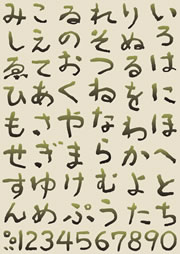 いろはにほへとち
りぬるをわかよた
れそつねならむう
ゐのおくやまけふ
こえてあさきゆめ
みしゑひもせすん
゛゜1234567890